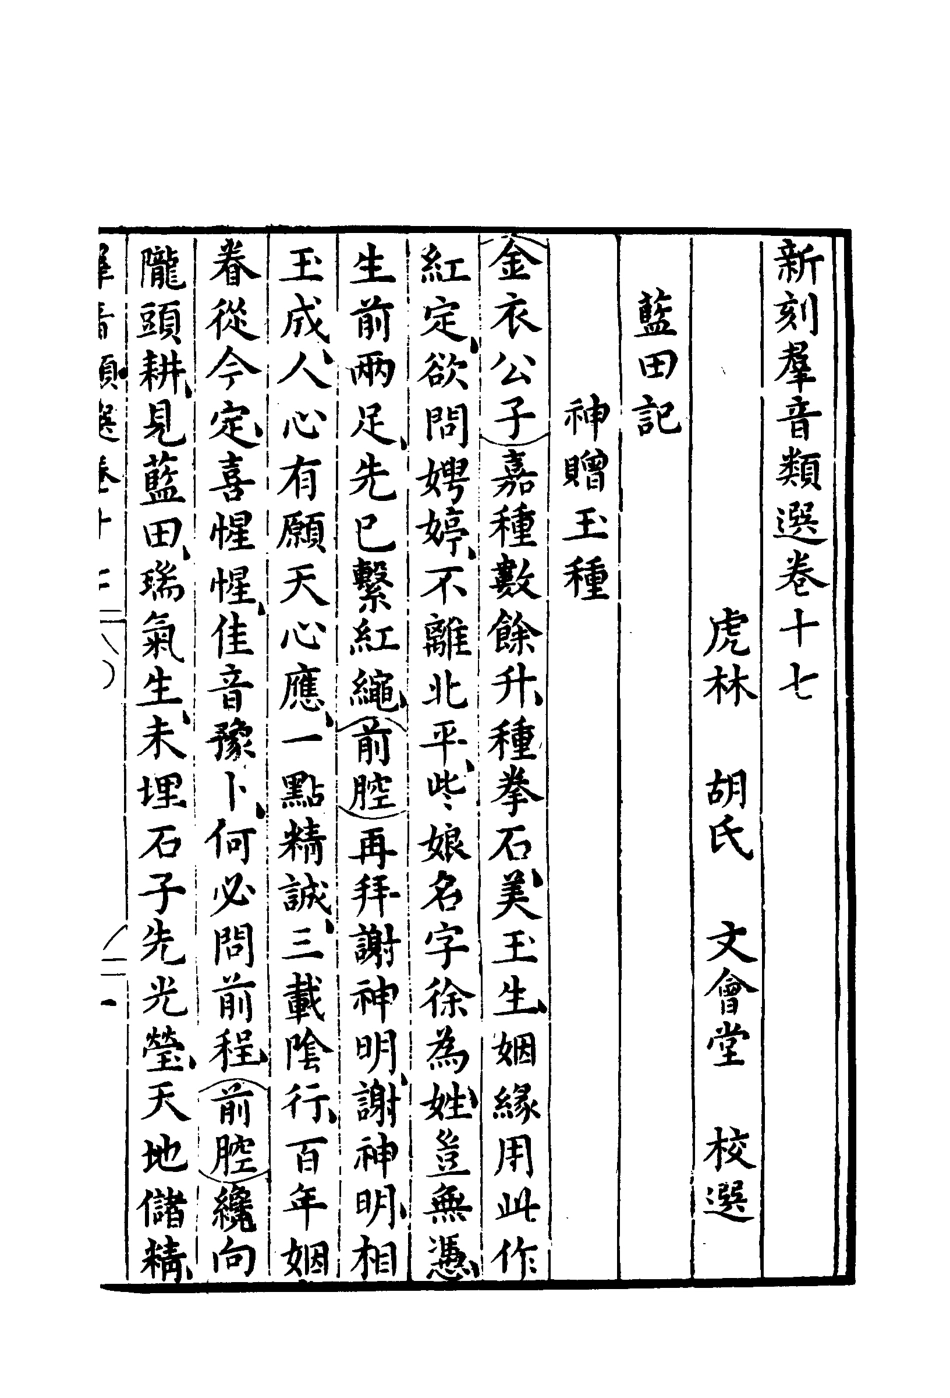 新刻羣音類選卷十七
虎林　胡氏　文會堂　校選
藍田記
神贈玉種
金衣公子嘉種數餘升、種拳石、美玉生、姻緣用此作
紅定、欲問娉婷、不離北平、些娘名字徐為姓、豈無憑、
生前兩足、先已繫紅繩、前腔再拜謝神明、謝神明、相
玉成、人心有願天心應、一點精誠、三載陰行、百年姻
眷從今定、喜惺惺、佳音豫卜、何必問前程、前腔纔向
隴頭耕、見藍田、瑞氣生、未埋石子先光瑩、天地儲精、
羣音類選卷十七　一